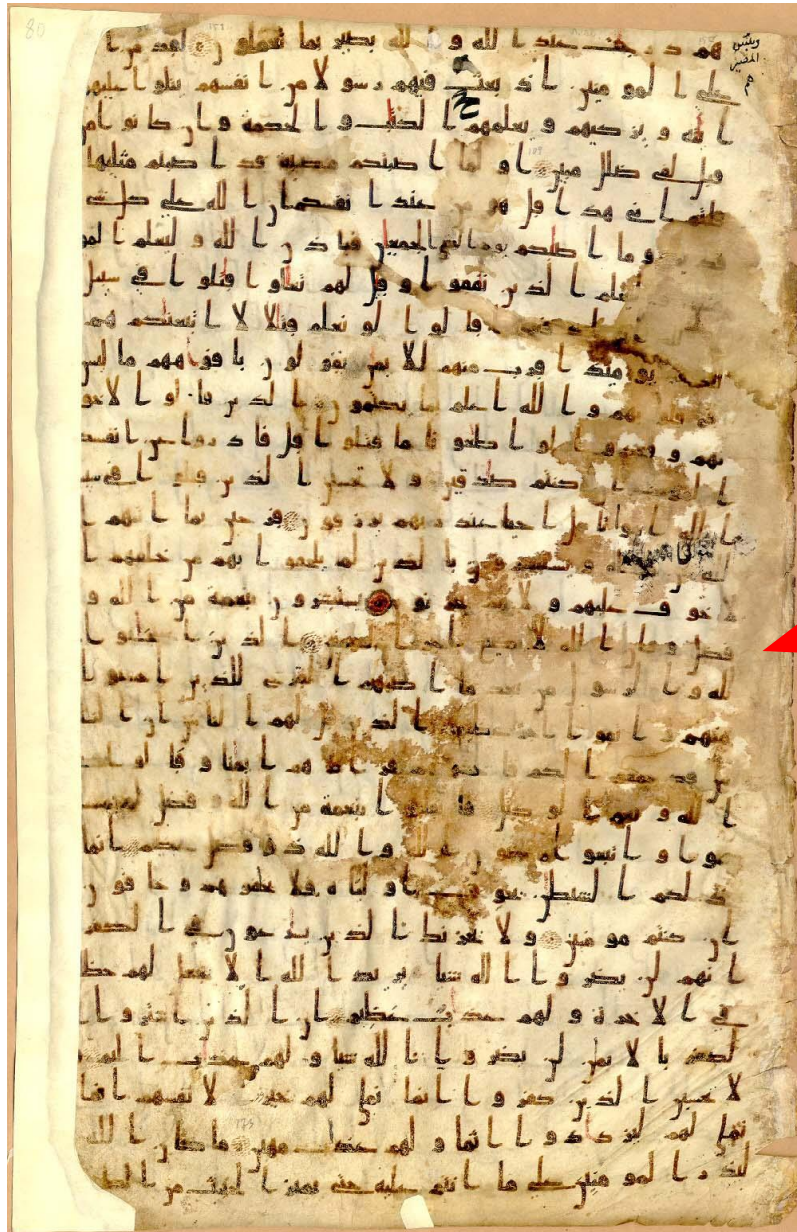 80
وبئس
المصير
هم
هم درجت عند الله و الله بصير بما يعملون لقد من ا
على المومنين اذ بعث فيهم رسولا من انفسهم يتلوا عليهم
ايته و يزكيهم و يعلمهم الكتب و الحكمة و ان كانوا من
قبل لفى ضلل مبين او لما اصبتكم مصيبة قد اصبتم مثليها
قلتم انى هذا قل هو من عند انفسكم ان الله على كل شى
و ما اصبكم يوم التقى الجمعين فباذن الله و ليعلم المو
ليعلم الذين نفقوا و قيل لهم تعالوا قتلوا فى سبيل
قالوا لو نعلم قتلا لا اتبعنكم هم
يومئذ اقرب منهم للايمن يقولون بافوههم ما ليس
فى قلوبهم و الله اعلم بما يكتمون الذين قالوا لاخو
نهم و قعدوا لو اطعونا ما قتلوا قل فادروا عن انفسكم
الموت ان كنتم صدقين و لا تحسبن الذين قتلوا فى سبيل
الله اموتا بل احيا عند ربهم يرزقون فرحين بما اتهم ا
لله و يستبشرون بالذين لم يلحقوا بهم من خلفهم ا
لا خوف عليهم و لا هم يحزنون يستبشرون بنعمة من الله و
فضل و ان الله لا يضيع اجر المومنين الذين استجبوا
لله و الرسول من بعد ما اصبهم القرح للذين احسنوا
منهم و اتقوا اجر عظيم الذين قال لهم الناس ان النا
س قد جمعوا لكم فاخشوهم فزادهم ايمنا و قالوا
الله و نعم الوكيل فانقلبوا بنعمة من الله و فضل لم يمسسهم
سو و اتبعوا رضون الله و الله ذو فضل عظيم انما
ذلكم الشيطن يخوف اولياه فلا تخفوهم و خافون
ان كنتم مومنين و لا يحزنك الذين يسرعون فى الكفر
انهم لن يضروا الله شيا يريد الله الا يجعل لهم حظا
فى الاخرة و لهم عذاب عظيم ان الذين اشتروا ا
لكفر بالايمن لن يضروا الله شيا و لهم عذاب اليم و
لا يحسبن الذين كفروا انما نملى لهم خير لانفسهم انما
نملى لهم ليزدادوا اثما و لهم عذاب مهين ما كان الله
ليذر المومنين على ما انتم عليه حتى يميز الخبيث من الطيب